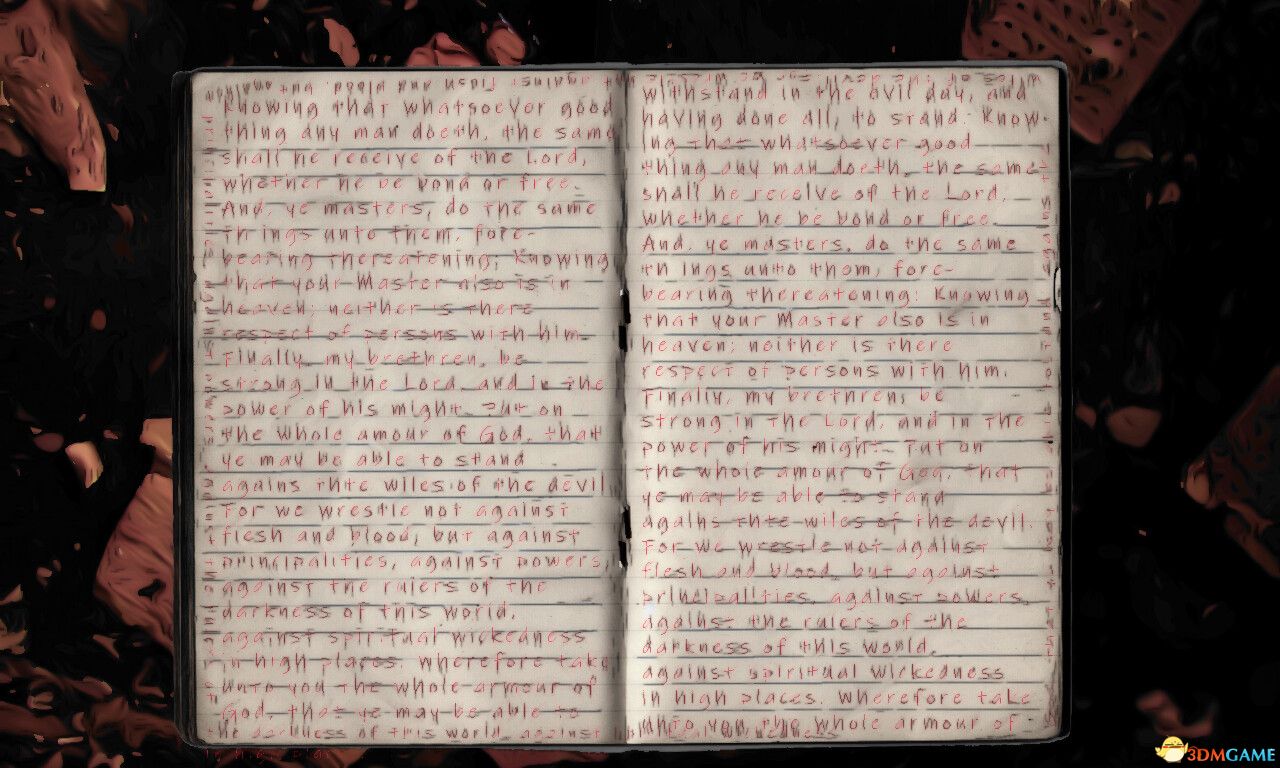 against flesh and blood, but against
Knowing that whatsoever good
thing any man doeth, the same
shall he receive of the Lord,
whether he be bond or free.
And, ye masters, do the same
things unto them, fore-
bearing thereatening; Knowing
that your Master also is in
heaven; neither is there
respect of persons with him.
Finally, my brethren, be
strong in the Lord, and in the
power of his might. Put on
the whole amour of God, that
ye may be able to stand
agains thte wiles of the devil
For we wrestle not against
flesh and blood, but against
principalities, against powers,
against the rulers of the
darkness of this world,
against spiritual wickedness
in high places. Wherefore take
unto you the whole armour of
God, that ye may be able to
the darkness of this world, against
withstand in the evil day, and
having done all, to stand. Know-
ing that whatsoever good
thing any man doeth, the same
shall he receive of the Lord,
whether he be bond or free.
And, ye masters, do the same
things unto them, fore-
bearing thereatening: Knowing
that your Master also is in
heaven: neither is there
respect of persons with him.
Finally, my brethren, be
strong in the Lord, and in the
power of his might. Put on
the whole amour of God, that
ye may be able to stand
agains thte wiles of the devil.
For we wrestle not against
flesh and blood, but against
principalities, against powers,
against the rulers of the
darkness of this world,
against spiritual wickedness
in high places. Wherefore take
unto you the whole armour of
3DMGAME